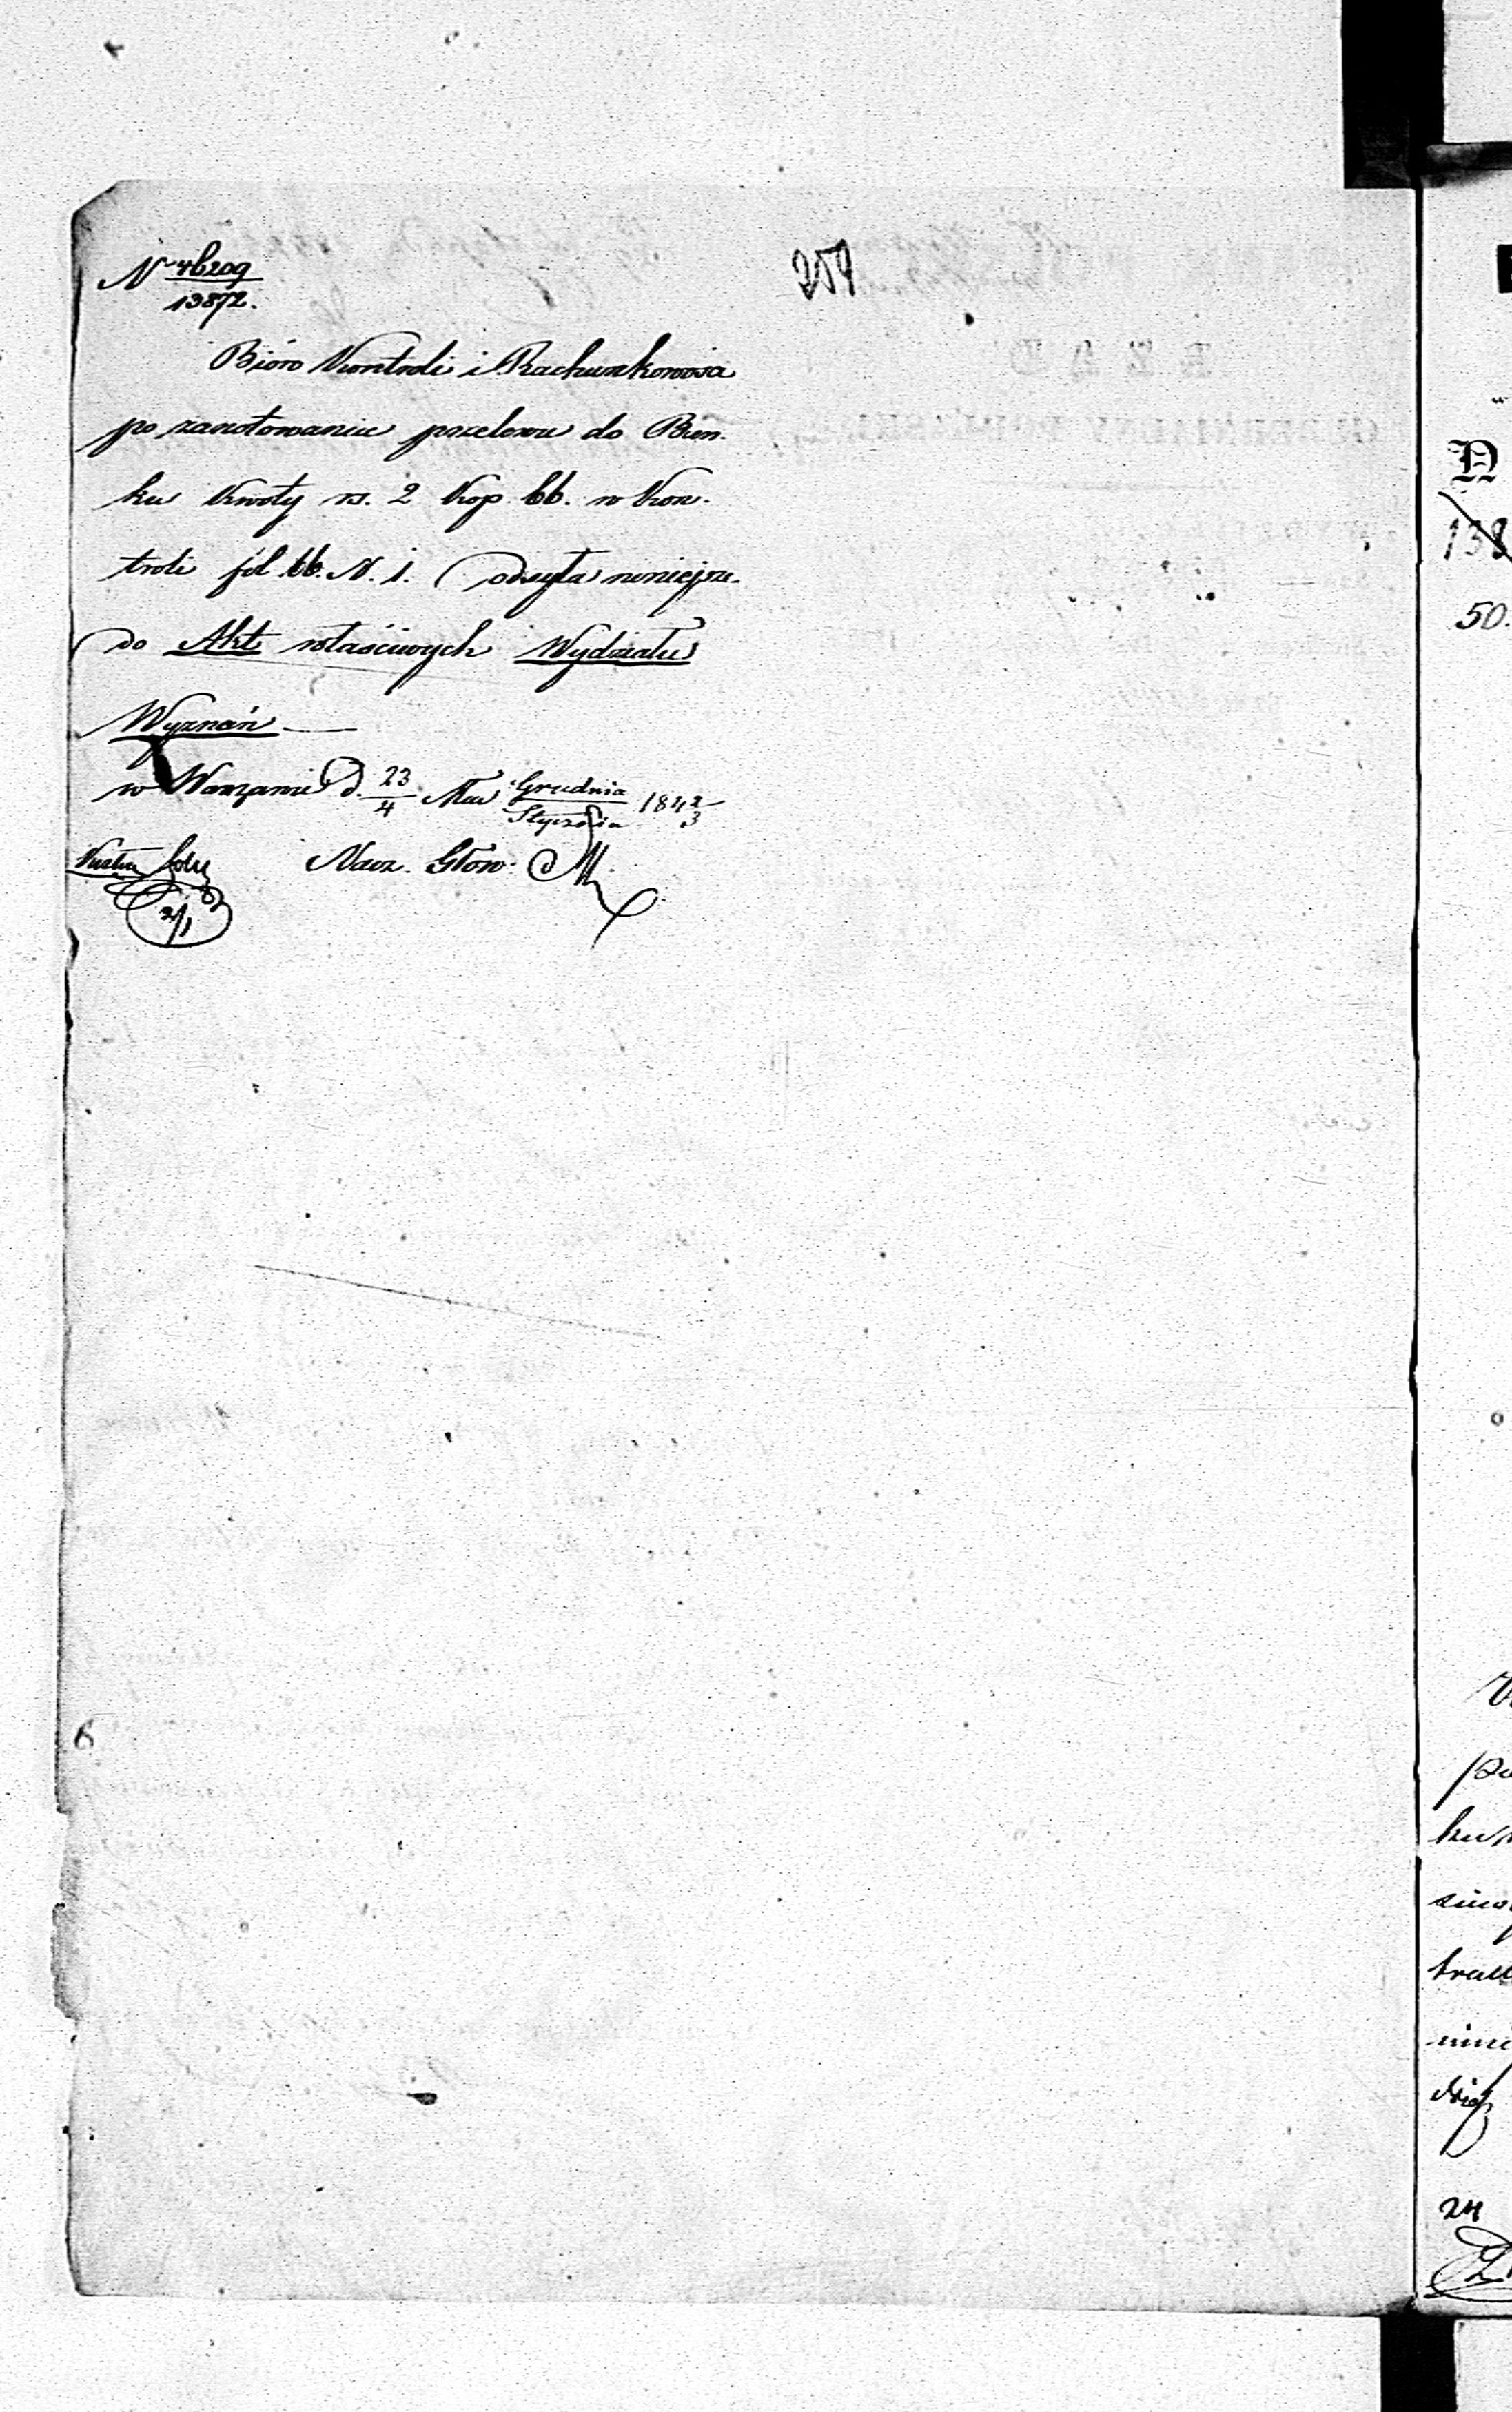 N 46209
13872.
259
Bióro Kontroli i Rachunkowości
po zanotowaniu przelewu do Ban-
ku kwoty rs. 2 kop. 66. w Kon-
troli fol. 66. N. 1. odsyła niniejsze
do Akt właściwych Wydziału
Wyznań
w Warszawie d. 23/4 Mca Grudnia/Stycznia 1842/3
Nacz. Głów.
2/1
6
N
138
50.
24